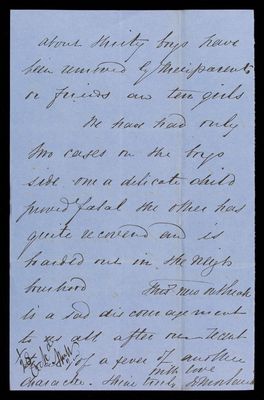 about thirty boys have
been removed by their parents
or friends and ten girls
We have had only
two cases on the boys
side one a delicate child
proved fatal the other has
quite recovered and is
boarded out in the neigh
bourhood This new outbreak
is a sad discouragement
to us all after our recent
of a fever of another
character
with love